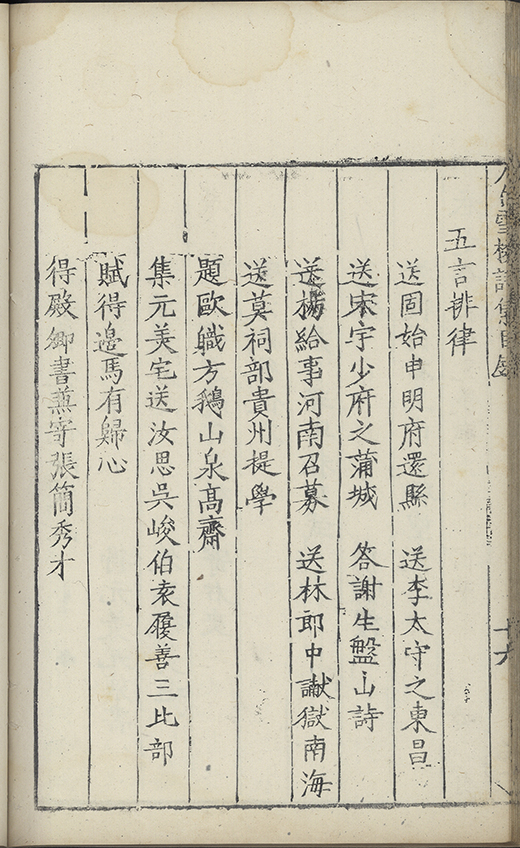 雪樓詩集目錄
五言排律
送固始申明府還縣　送李太守之東昌
送宋宇少府之蒲城　答謝生盤山詩
送楊給事河南召募　送林郎中讞獄南海
送莫祠部貴州提學
題歐職方鵝山泉高齋
集元美宅送汝思吳峻伯袁履善三比部
賦得邊馬有歸心
得殿卿書兼寄張簡秀才